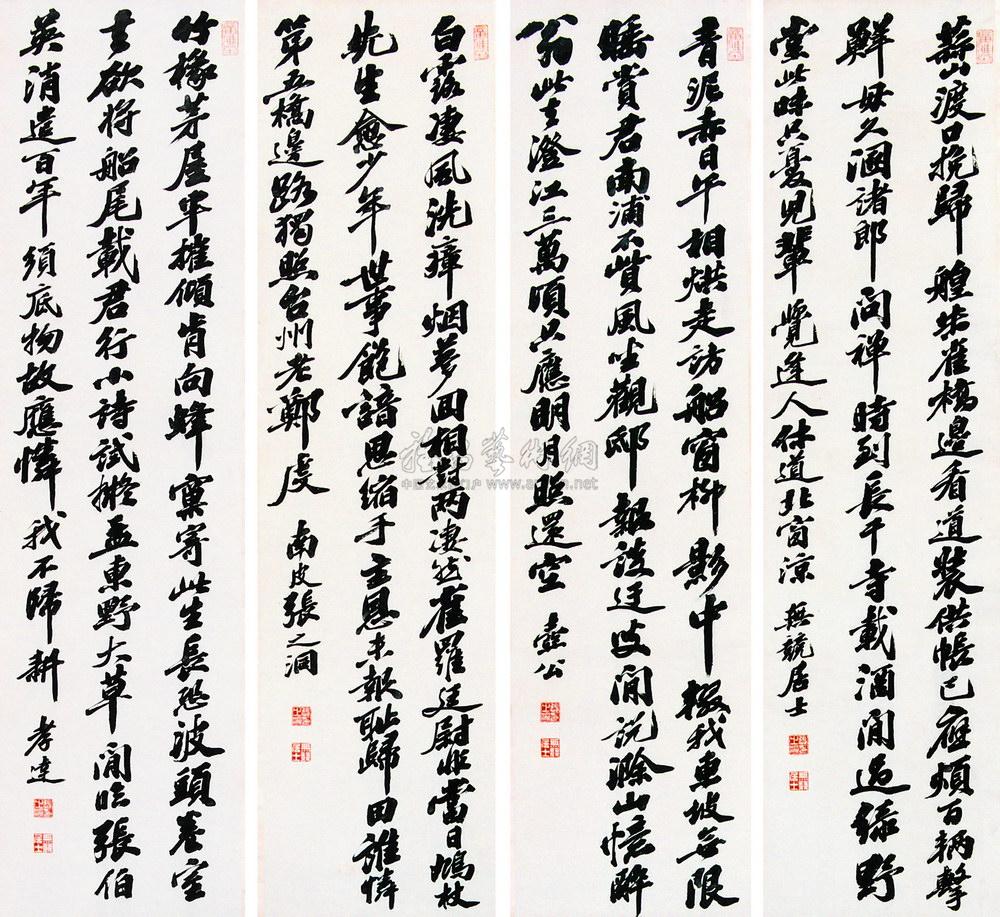 蒜山渡口挽歸艎朱雀橋邊看道裝供帳已應煩百輛擊
鮮毋久溷諸郎問禪時到長干寺載酒閒過綠野
堂此味只憂兒輩覺逢人休道北窗涼 無競居士
青泥赤日午相烘走訪船窗柳影中輟我東坡無限
睡賞君南浦不貲風坐觀邸報談迂叟閒說滁山憶醉
翁此去澄江三萬頃只應明月照還空 壺公
白露淒風洗瘴烟夢回相對兩凄然雀羅廷尉非當日鳩杖
先生愈少年世事飽諳思縮手主恩未報恥歸田誰憐
第五橋邊路獨照台州老鄭虔 南皮張之洞
竹椽茅屋半摧傾肯向蜂窠寄此生長恐波頭卷室
去欲將船尾載君行小詩試擬孟東野大草閒臨張伯
英消遣百年須底物故應憐我不歸耕 孝達